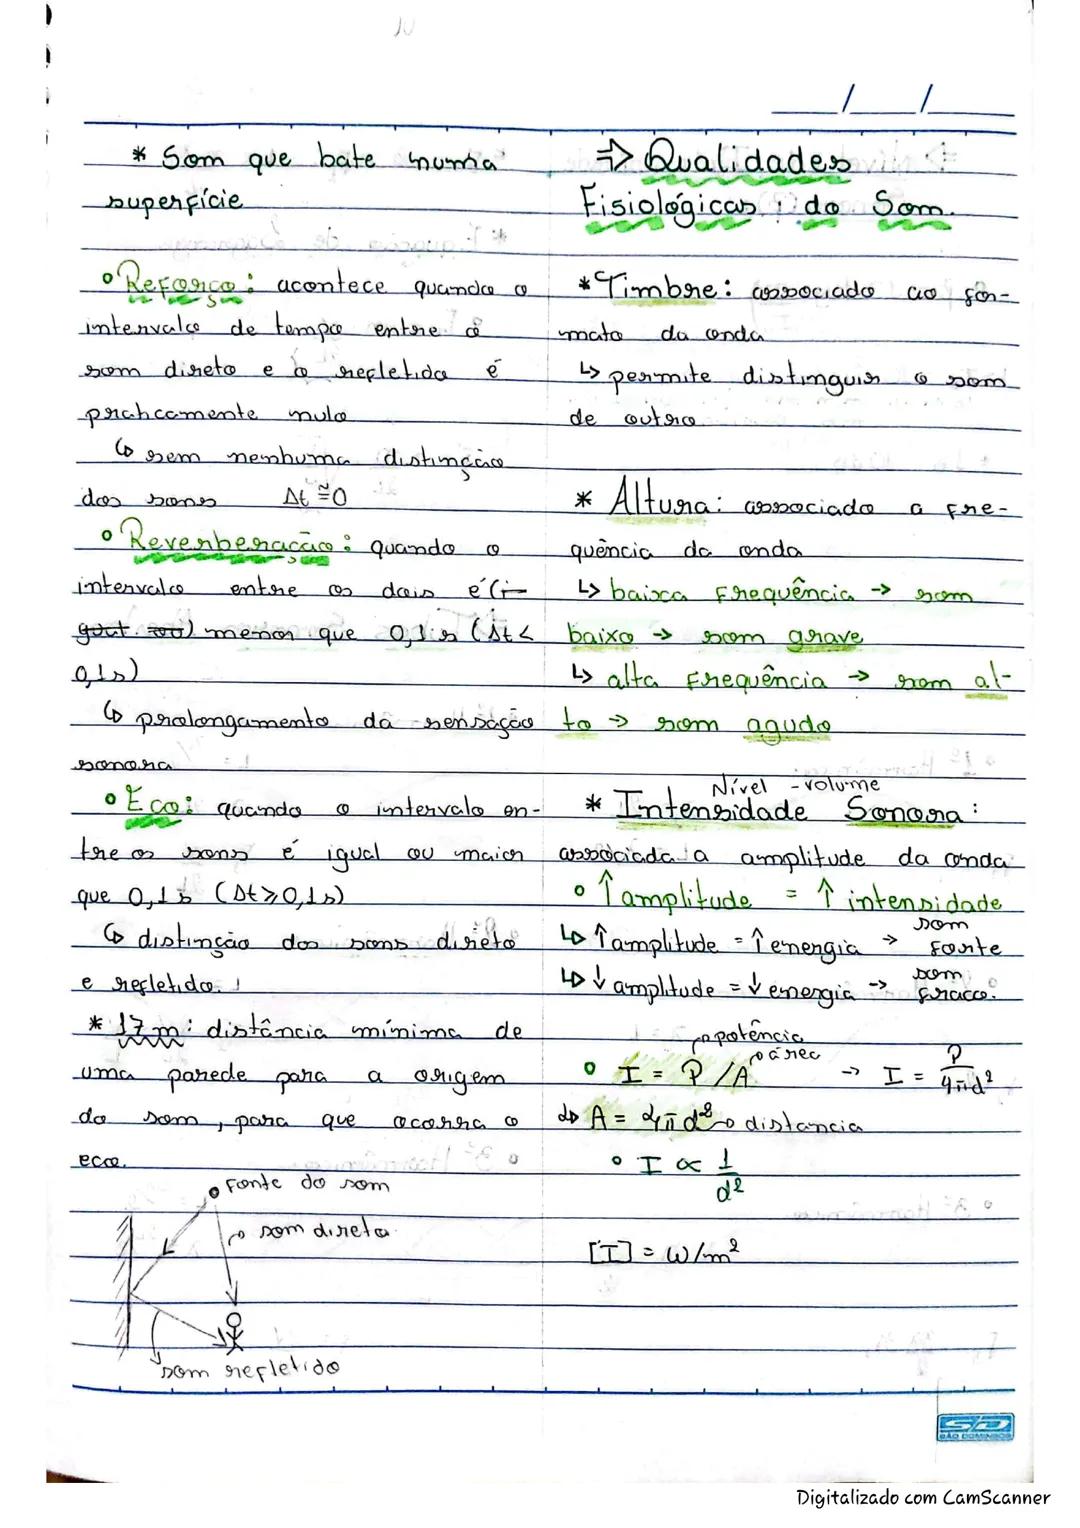 * Som que bate numa
superfície
° Reforço: acontece quando o
intervalo de tempo entre o
som direto e o refletido é
praticamente nulo
↳ sem nenhuma distinção
dos sons Δt ≅ 0
° Reverberação: quando o
intervalo entre os dois é (i-
gual. ) menor que 0,1 s (Δt <
0,1s)
↳ prolongamento da sensação
sonora
° Eco: quando o intervalo en-
tre os sons é igual ou maior
que 0,1 s (Δt ⩾ 0,1s)
↳ distinção dos sons direto
e refletido.
* 17 m: distância mínima de
uma parede para a origem
do som, para que ocorra o
eco.
fonte do som
som direto
som refletido
__/__/__
⇒ Qualidades
Fisiológicas do Som.
* Timbre: associado ao for-
mato da onda
↳ permite distinguir o som
de outro
* Altura: associado a fre-
quência da onda
↳ baixa frequência → som
baixo → som grave
↳ alta frequência → som al-
to → som agudo
Nível - volume
* Intensidade Sonora:
associada a amplitude da onda
° ↑ amplitude = ↑ intensidade
↳ ↑ amplitude = ↑ energia → som forte
↳ ↓ amplitude = ↓ energia → som fraco.
potência
área
° I = P/A → I = P/4πd²
↳ A = 4πd² distancia
° I ∝ 1/d²
[I] = W/m²
SD
SÃO DOMINGOS
Digitalizado com CamScanner